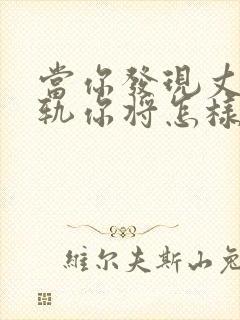 當你發現丈
軌你将怎樣
維尔夫斯山兔